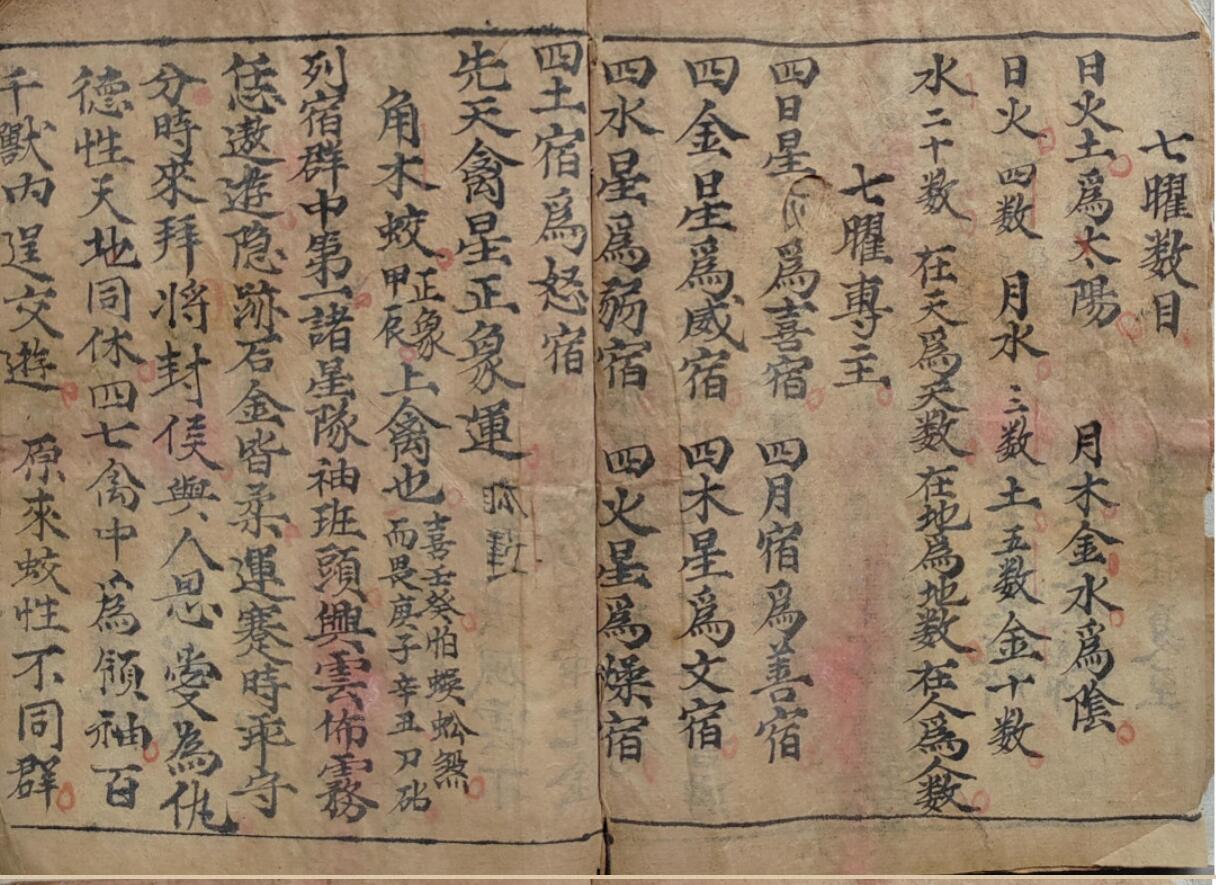 七曜数目
日火土爲太陽 月木金水爲陰
日火四数 月水三数土五数金十数
水二十数 在天爲天数在地爲地数在人爲人数
七曜專主
四日星爲喜宿 四月宿爲善宿
四金星爲威宿 四木星爲文宿
四水星爲弱宿 四火星爲燥宿
四土宿爲怒宿
先天禽星正象運
角木蛟正象甲辰上禽也喜壬癸怕蜈蚣煞而畏庚子辛丑刀砧
列宿群中第一諸星隊袖班頭興雲佈霧
恁遨遊隐跡石金皆柔運蹇時乖守
分時來拜将封侯與人恩愛為仇
德性天地同休四七禽中為領袖百
千獸内逞交遊 原來蛟性不同群